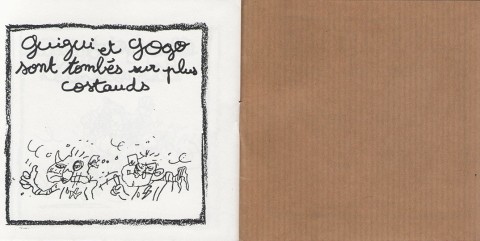 Guigui et Gogo
sont tombés sur plus
costauds